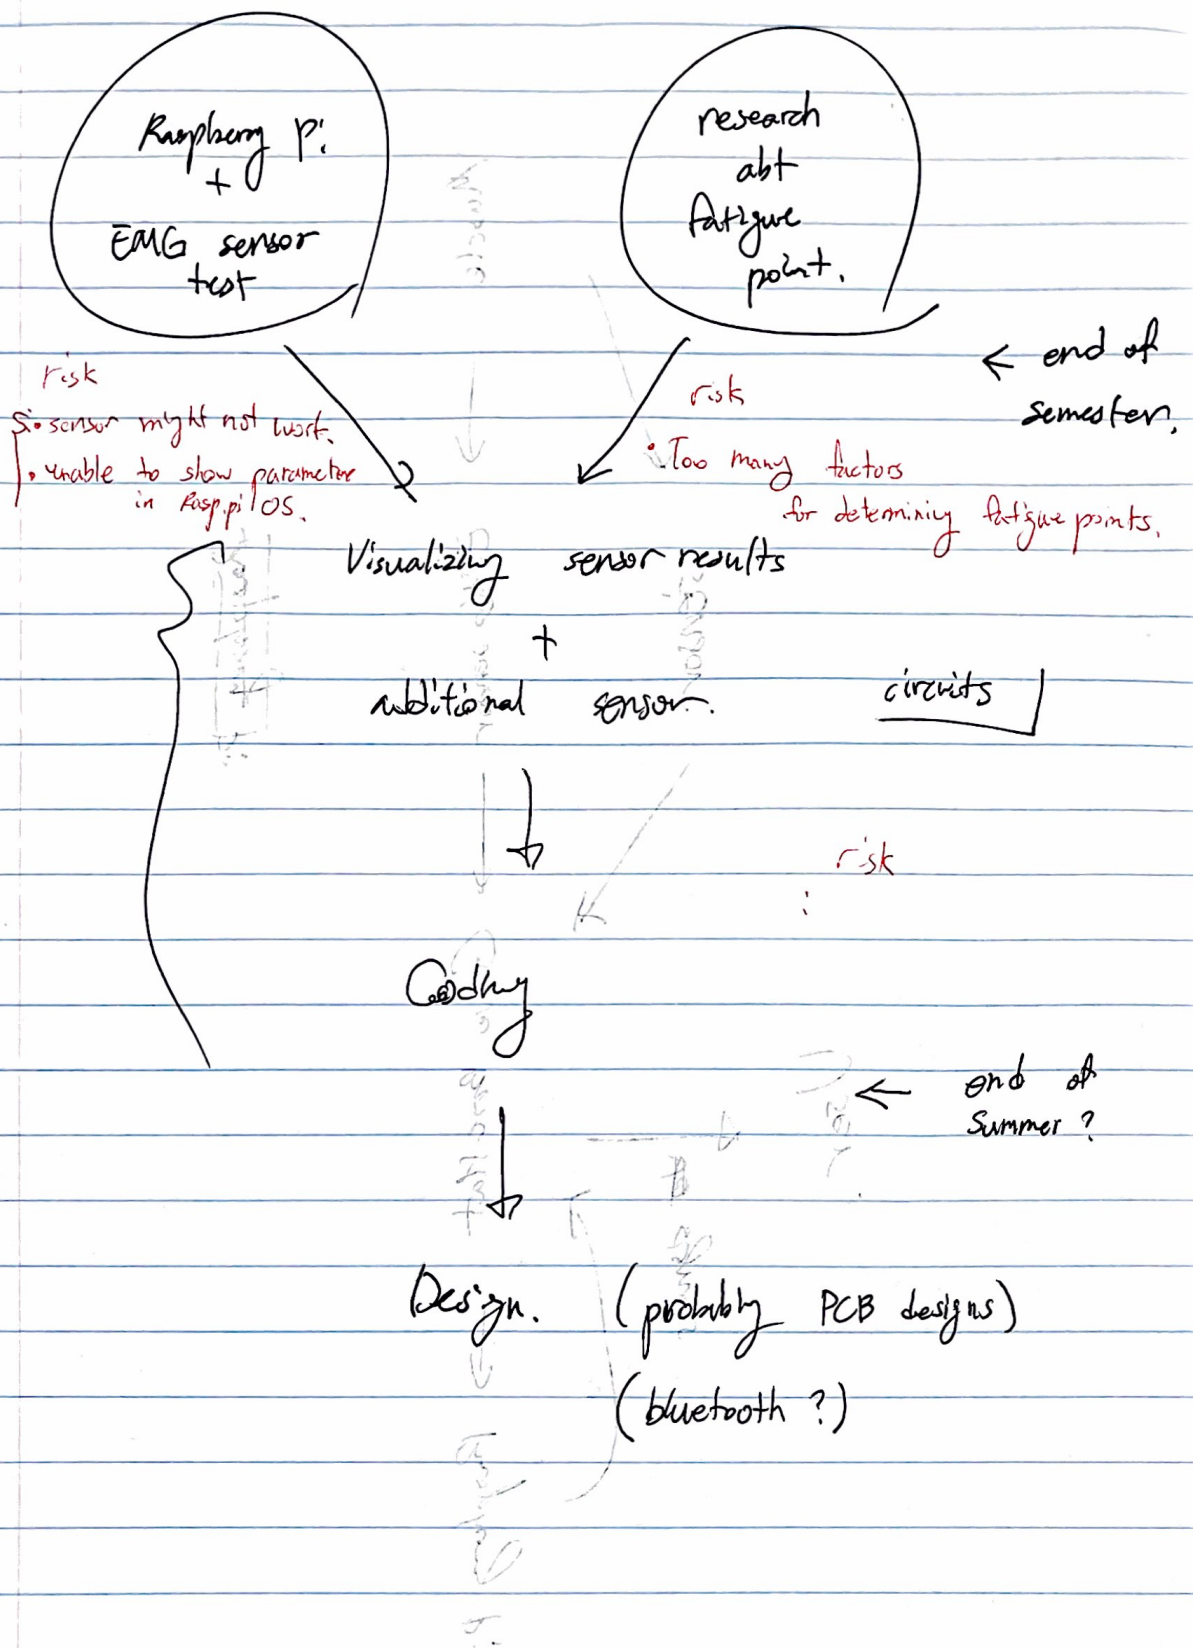 Raspberry Pi
+
EMG sensor
test
research
abt
fatigue
point.
← end of
semester.
risk
• sensor might not work.
• unable to show parameter
in Rasp.pi OS.
risk
• Too many factors
for determining fatigue points.
Visualizing sensor results
+
additional sensor.
circuits
risk
:
Coding
← end of
Summer ?
Design. (probably PCB designs)
(bluetooth ?)